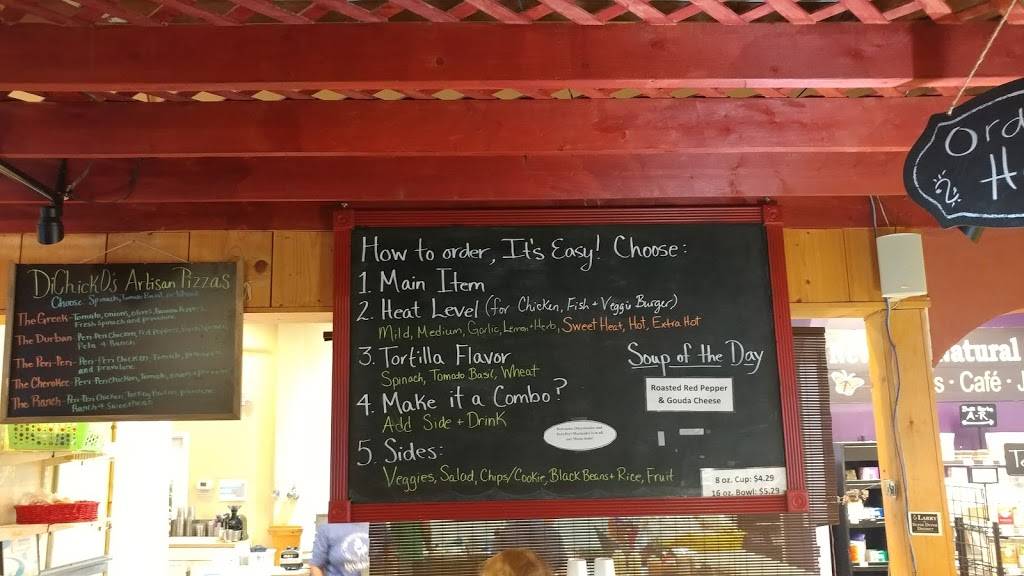 DiChickO's Artisan Pizzas
Choose: Spinach, Tomato Basil, or Wheat
The Greek - Tomato, onions, olives,
Fresh Spinach and provolone
The Durban - Peri-Peri Chicken, Red Peppers,
Feta & Ranch
The Peri-Peri - Peri-Peri Chicken, Tomato,
and provolone
The Cherokee - Peri-Peri Chicken, Tomato, onions + provolone
The Ranch - Peri-Peri Chicken, Turkey Bacon, provolone
Ranch + Sweetheat
How to order, It's Easy! Choose:
1. Main Item
2. Heat Level (for Chicken, Fish + Veggie Burger)
Mild, Medium, Garlic, Lemon + Herb, Sweet Heat, Hot, Extra Hot
3. Tortilla Flavor
Spinach, Tomato Basil, Wheat
4. Make it a Combo?
Add Side + Drink
5. Sides:
Veggies, Salad, Chips/Cookie, Black Beans + Rice, Fruit
Soup of the Day
Roasted Red Pepper
& Gouda Cheese
8 oz. Cup: $4.29
16 oz. Bowl: $5.29
Ord
H
Natural
s · Café · J
A-R
LARRY